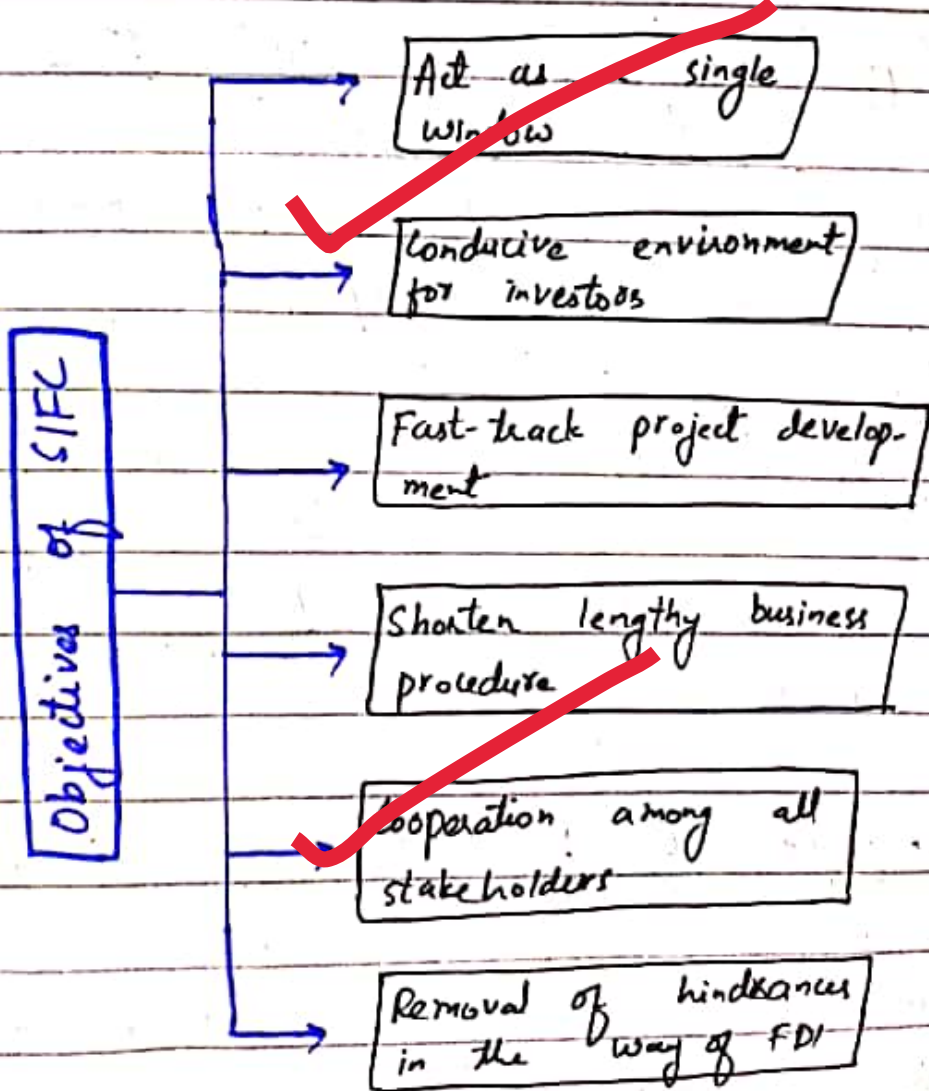 Objectives of SIFC
Act as single
window
Conducive environment
for investors
Fast-track project develop-
ment
Shorten lengthy business
procedure
Cooperation among all
stakeholders
Removal of hindrances
in the way of FDI